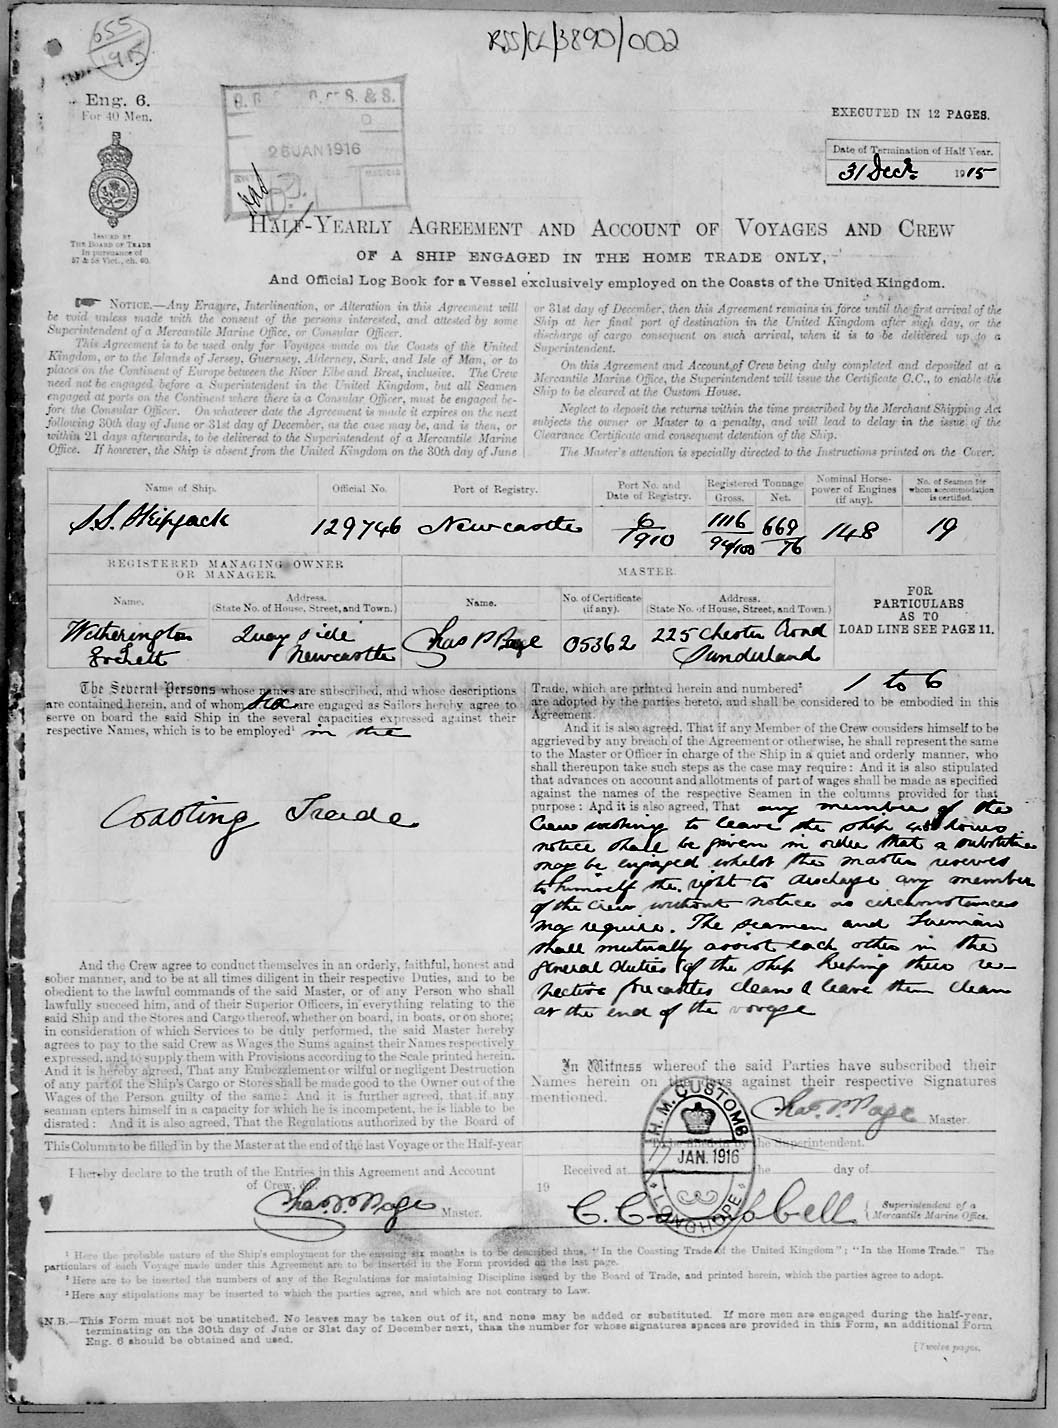 655
1915
RSS/CL/3890/002
Eng. 6.
For 40 Men.
EXECUTED IN 12 PAGES.
S. & S.
26 JAN 1916
Date of Termination of Half Year.
31 Decr. 1915
ISSUED BY
THE BOARD OF TRADE
In pursuance of
57 & 58 Vict., ch. 60.
HALF-YEARLY AGREEMENT AND ACCOUNT OF VOYAGES AND CREW
OF A SHIP ENGAGED IN THE HOME TRADE ONLY,
And Official Log Book for a Vessel exclusively employed on the Coasts of the United Kingdom.
NOTICE.—Any Erasure, Interlineation, or Alteration in this Agreement will
be void unless made with the consent of the persons interested, and attested by some
Superintendent of a Mercantile Marine Office, or Consular Officer.
This Agreement is to be used only for Voyages made on the Coasts of the United
Kingdom, or to the Islands of Jersey, Guernsey, Alderney, Sark, and Isle of Man, or to
places on the Continent of Europe between the River Elbe and Brest, inclusive. The Crew
need not be engaged before a Superintendent in the United Kingdom, but all Seamen
engaged at ports on the Continent where there is a Consular Officer, must be engaged be-
fore the Consular Officer. On whatever date the Agreement is made it expires on the next
following 30th day of June or 31st day of December, as the case may be, and is then, or
within 21 days afterwards, to be delivered to the Superintendent of a Mercantile Marine
Office. If however, the Ship is absent from the United Kingdom on the 30th day of June
or 31st day of December, then this Agreement remains in force until the first arrival of the
Ship at her final port of destination in the United Kingdom after such day, or the
discharge of cargo consequent on such arrival, when it is to be delivered up to a
Superintendent.
On this Agreement and Account of Crew being duly completed and deposited at a
Mercantile Marine Office, the Superintendent will issue the Certificate C.C., to enable the
Ship to be cleared at the Custom House.
Neglect to deposit the returns within the time prescribed by the Merchant Shipping Act
subjects the owner or Master to a penalty, and will lead to delay in the issue of the
Clearance Certificate and consequent detention of the Ship.
The Master's attention is specially directed to the Instructions printed on the Cover.
Name of Ship.
Official No.
Port of Registry.
Port No. and
Date of Registry.
Registered Tonnage
Gross. Net.
Nominal Horse-
power of Engines
(if any).
No. of Seamen for
whom accommodation
is certified.
S.S. Skipjack 129746 Newcastle 6/1910 1116 94/100 669 76 148 19
REGISTERED MANAGING OWNER
OR MANAGER.
MASTER.
Name.
Address.
(State No. of House, Street, and Town.)
Name.
No. of Certificate
(if any).
Address.
(State No. of House, Street, and Town.)
FOR
PARTICULARS
AS TO
LOAD LINE SEE PAGE 11.
Witherington
& Everett
Quay side
Newcastle
Chas P Page
05362
225 Chester Road
Sunderland
The Several Persons whose names are subscribed, and whose descriptions
are contained herein, and of whom six are engaged as Sailors hereby agree to
serve on board the said Ship in the several capacities expressed against their
respective Names, which is to be employed¹ in the
Coasting Trade
And the Crew agree to conduct themselves in an orderly, faithful, honest and
sober manner, and to be at all times diligent in their respective Duties, and to be
obedient to the lawful commands of the said Master, or of any Person who shall
lawfully succeed him, and of their Superior Officers, in everything relating to the
said Ship and the Stores and Cargo thereof, whether on board, in boats, or on shore;
in consideration of which Services to be duly performed, the said Master hereby
agrees to pay to the said Crew as Wages the Sums against their Names respectively
expressed, and to supply them with Provisions according to the Scale printed herein.
And it is hereby agreed, That any Embezzlement or wilful or negligent Destruction
of any part of the Ship's Cargo or Stores shall be made good to the Owner out of the
Wages of the Person guilty of the same: And it is further agreed, that if any
seaman enters himself in a capacity for which he is incompetent, he is liable to be
disrated: And it is also agreed, That the Regulations authorized by the Board of
Trade, which are printed herein and numbered² 1 to 6
are adopted by the parties hereto, and shall be considered to be embodied in this
Agreement.
And it is also agreed, That if any Member of the Crew considers himself to be
aggrieved by any breach of the Agreement or otherwise, he shall represent the same
to the Master or Officer in charge of the Ship in a quiet and orderly manner, who
shall thereupon take such steps as the case may require: And it is also stipulated
that advances on account and allotments of part of wages shall be made as specified
against the names of the respective Seamen in the columns provided for that
purpose: And it is also agreed, That any member of the
Crew wishing to leave the ship 48 hours
notice shall be given in order that a substitute
may be engaged whilst the master reserves
to himself the right to discharge any member
of the Crew without notice as circumstances
may require. The seamen and Firemen
shall mutually assist each other in the
general duties of the ship keeping their re-
spective forecastles clean & leave them clean
at the end of the voyage
In Witness whereof the said Parties have subscribed their
Names herein on the days against their respective Signatures
mentioned.
Chas. P Page Master.
This Column to be filled in by the Master at the end of the last Voyage or the Half-year
To be filled in by the Superintendent.
I hereby declare to the truth of the Entries in this Agreement and Account
of Crew, &c.
Chas. P Page Master.
H.M. CUSTOMS
17 JAN. 1916
LONGHOPE
Received at the day of
19
C. Campbell
Superintendent of a
Mercantile Marine Office.
¹ Here the probable nature of the Ship's employment for the ensuing six months is to be described thus, "In the Coasting Trade of the United Kingdom"; "In the Home Trade." The
particulars of each Voyage made under this Agreement are to be inserted in the Form provided on the last page.
² Here are to be inserted the numbers of any of the Regulations for maintaining Discipline issued by the Board of Trade, and printed herein, which the parties agree to adopt.
³ Here any stipulations may be inserted to which the parties agree, and which are not contrary to Law.
N.B.—This Form must not be unstitched. No leaves may be taken out of it, and none may be added or substituted. If more men are engaged during the half-year,
terminating on the 30th day of June or 31st day of December next, than the number for whose signatures spaces are provided in this Form, an additional Form
Eng. 6 should be obtained and used.
[Twelve pages.